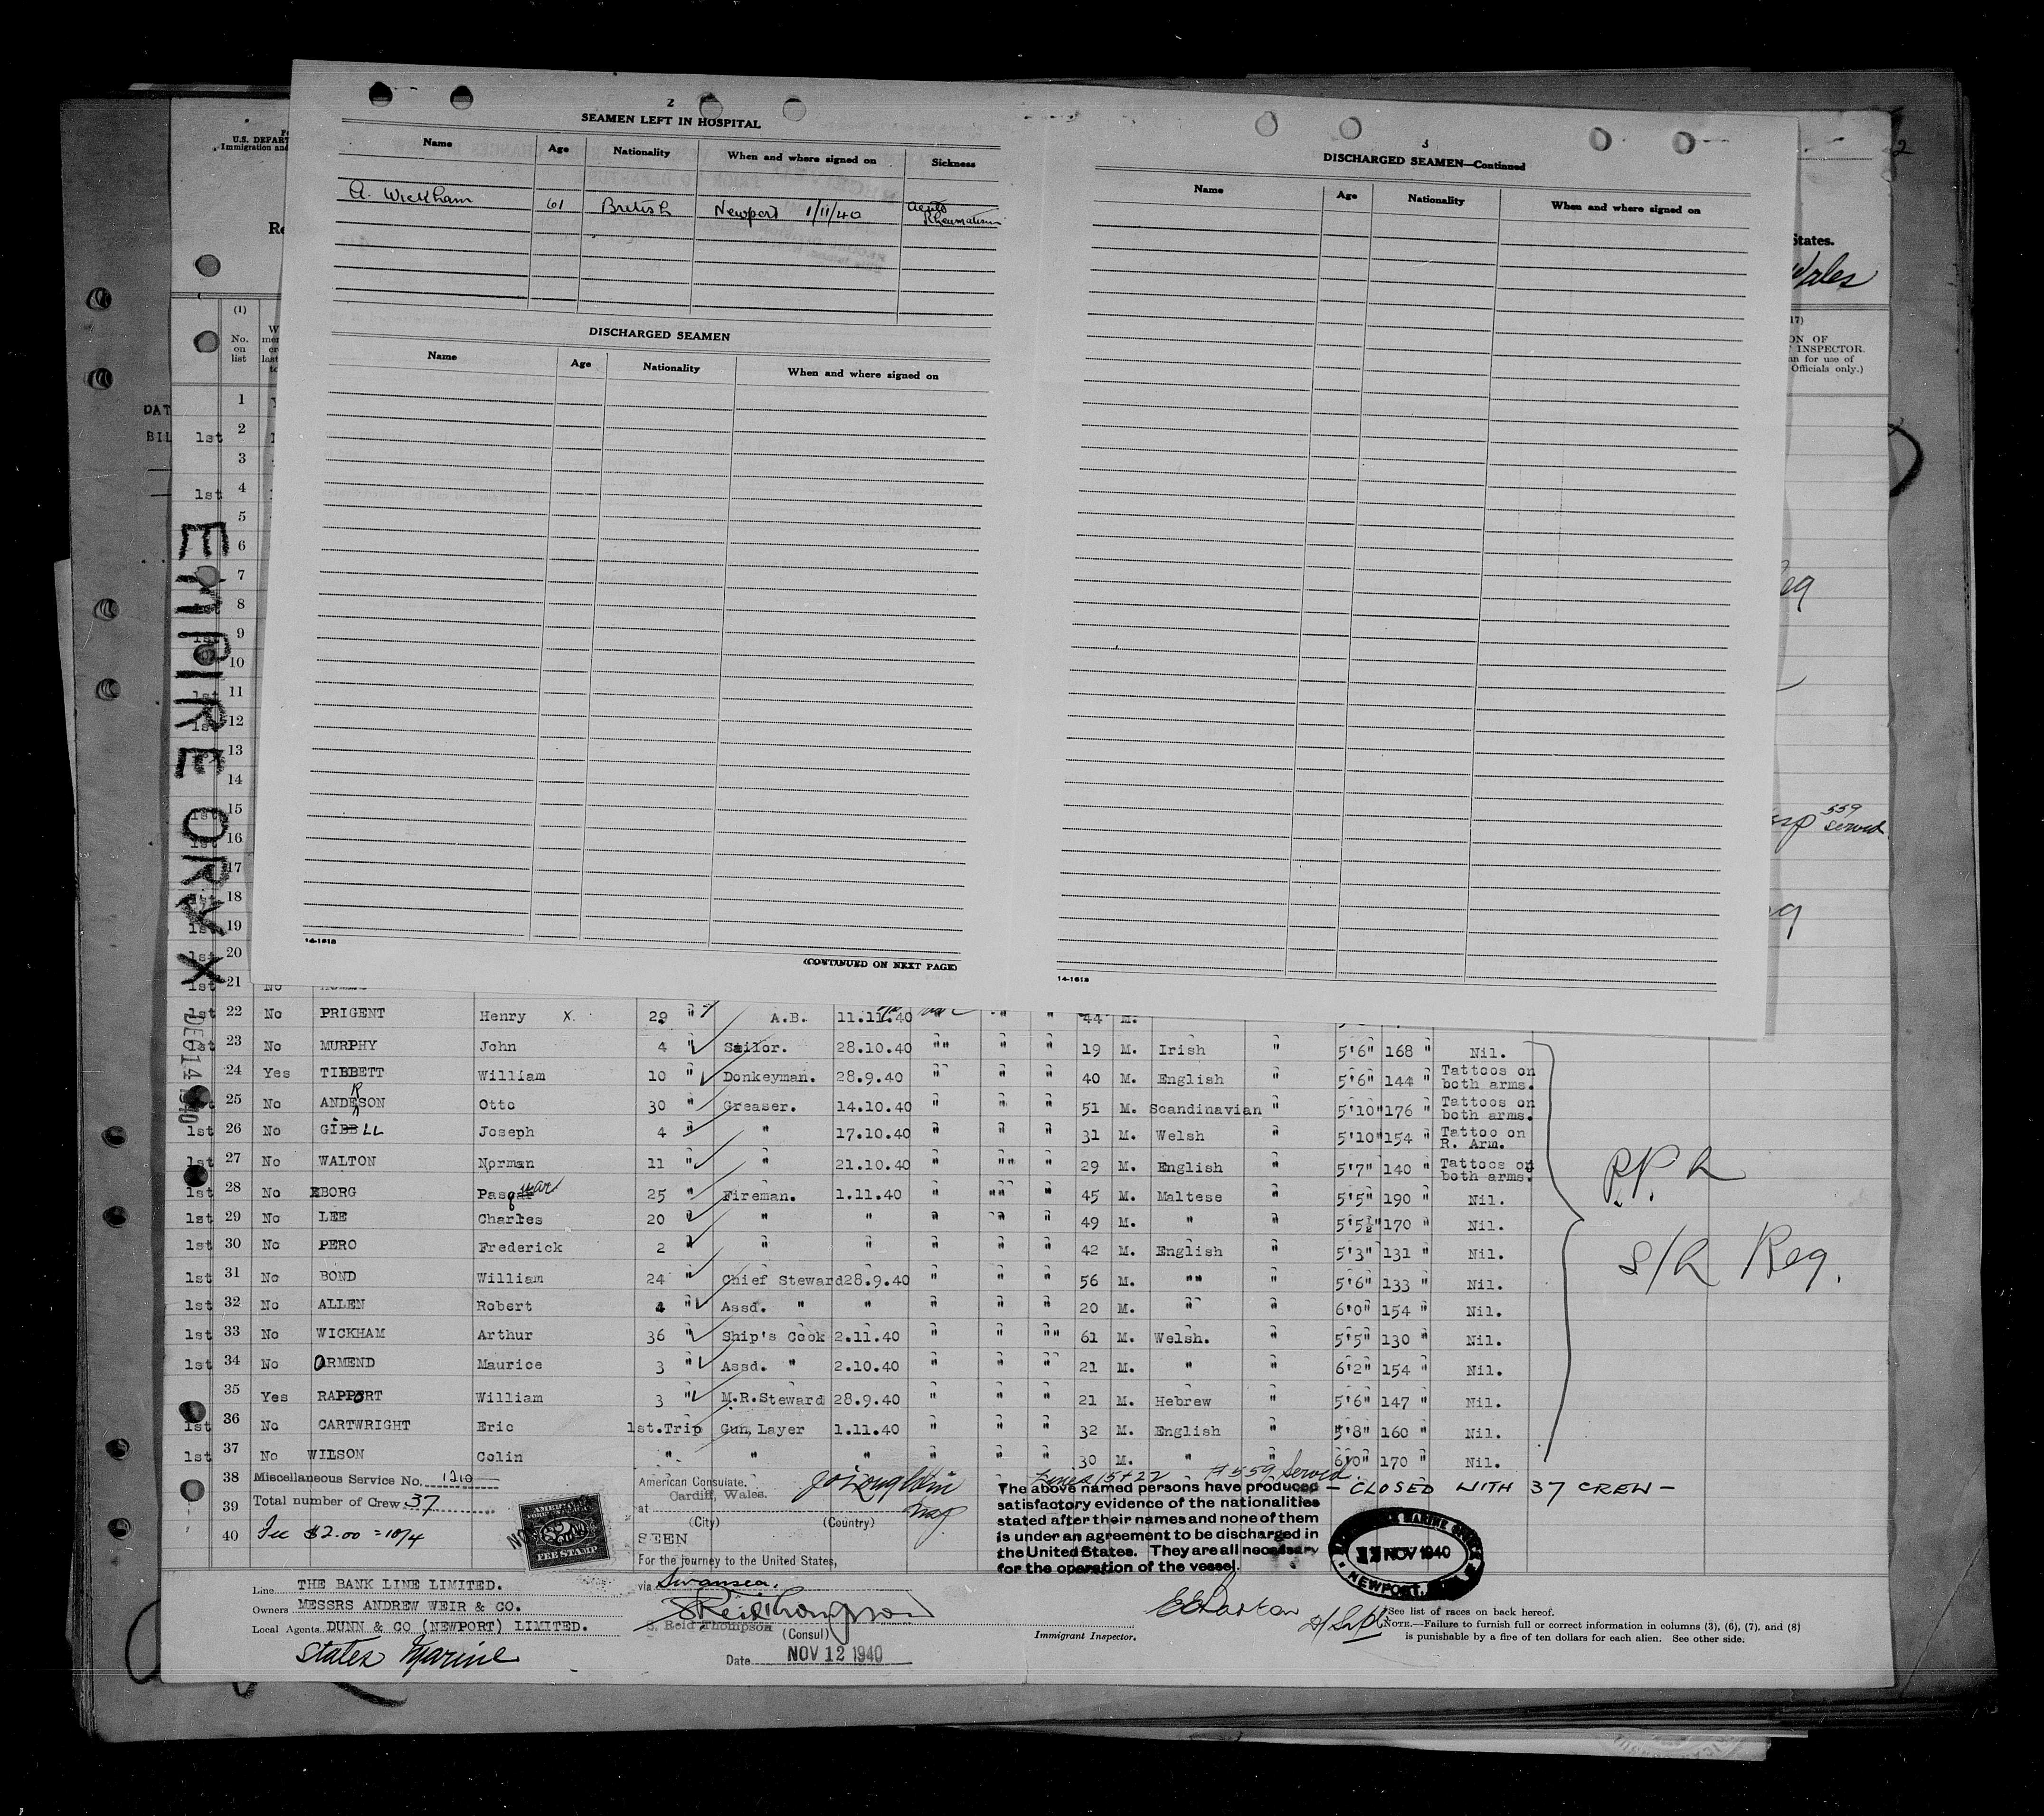 2
SEAMEN LEFT IN HOSPITAL
Name Age Nationality When and where signed on Sickness
A. Wickham 61 British Newport 1/11/40 Acute Rheumatism
DISCHARGED SEAMEN
Name Age Nationality When and where signed on
14-1618
(CONTINUED ON NEXT PAGE)
3
DISCHARGED SEAMEN—Continued
Name Age Nationality When and where signed on
14-1618
U.S. DEPART
Immigration and
2
States.
Wales
(1)
No. on list
17)
ON OF
INSPECTOR.
an for use of
Officials only.)
DAT
BIL
EMPIRE ORYX
DEC 14 1940
1
1st 2
3
1st 4
5
6
7
8
9
10
11
12
13
14
15
16
17
18
19
20
1st 21 No
559
served
1st 22 No PRIGENT Henry X 29 " A.B. 11.11.40 " " " 44 M.
1st 23 No MURPHY John 4 " Sailor. 28.10.40 "" " " 19 M. Irish " 5'6" 168 " Nil.
24 Yes TIBBETT William 10 " Donkeyman. 28.9.40 " " " 40 M. English " 5'6" 144 " Tattoos on both arms.
1st 25 No ANDERSON Otto 30 " Greaser. 14.10.40 " " " 51 M. Scandinavian " 5'10" 176 " Tattoos on both arms.
1st 26 No GIBBLL Joseph 4 " " 17.10.40 " " " 31 M. Welsh " 5'10" 154 " Tattoo on R. Arm.
1st 27 No WALTON Norman 11 " " 21.10.40 " "" " 29 M. English " 5'7" 140 " Tattoos on both arms.
1st 28 No BORG Pasqual 25 " Fireman. 1.11.40 " "" " 45 M. Maltese " 5'5" 190 " Nil.
1st 29 No LEE Charles 20 " " " " " " 49 M. " " 5'5½" 170 " Nil.
1st 30 No PERO Frederick 2 " " " " " " 42 M. English " 5'3" 131 " Nil.
1st 31 No BOND William 24 " Chief Steward 28.9.40 " " " 56 M. "" " 5'6" 133 " Nil.
1st 32 No ALLEN Robert 4 " Assd. " " " " " 20 M. " " 6'0" 154 " Nil.
1st 33 No WICKHAM Arthur 36 " Ship's Cook 2.11.40 " " "" 61 M. Welsh. " 5'5" 130 " Nil.
1st 34 No ORMEND Maurice 3 " Assd. " 2.10.40 " " " 21 M. " " 6'2" 154 " Nil.
35 Yes RAPPORT William 3 " M.R.Steward 28.9.40 " " " 21 M. Hebrew " 5'6" 147 " Nil.
1st 36 No CARTWRIGHT Eric 1st.Trip Gun Layer 1.11.40 " " " 32 M. English " 5'8" 160 " Nil.
1st 37 No WILSON Colin " " " " " " 30 M. " " 6'0" 170 " Nil.
S/R Reg.
38 Miscellaneous Service No. 1210
39 Total number of Crew 37
40 Fee $2.00 = 10/4
AMERICAN
FEE STAMP
American Consulate,
Cardiff, Wales.
at
(City) (Country)
SEEN
For the journey to the United States,
via Swansea.
S. Reid Thompson
S. Reid Thompson (Consul)
Date NOV 12 1940
Lines 15 + 22 #559 Served.
The above named persons have produced
satisfactory evidence of the nationalities
stated after their names and none of them
is under an agreement to be discharged in
the United States. They are all necessary
for the operation of the vessel.
- CLOSED WITH 37 CREW -
MARINE OFFICE
NOV 1940
NEWPORT
Line THE BANK LINE LIMITED.
Owners MESSRS ANDREW WEIR & CO.
Local Agents DUNN & CO (NEWPORT) LIMITED.
States Marine
Immigrant Inspector.
See list of races on back hereof.
NOTE.—Failure to furnish full or correct information in columns (3), (6), (7), and (8)
is punishable by a fine of ten dollars for each alien. See other side.